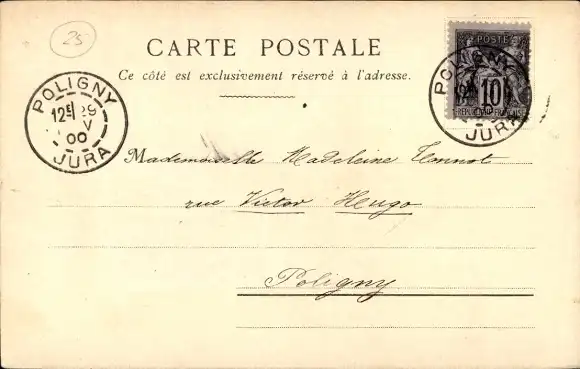 25
CARTE POSTALE
Ce côté est exclusivement réservé à l'adresse.
POLIGNY
12E 29
V
00
JURA
POSTE
10
REPUBLIQUE FRANÇAISE
POLIGNY
JURA
Mademoiselle Madeleine
rue Victor Hugo
Poligny